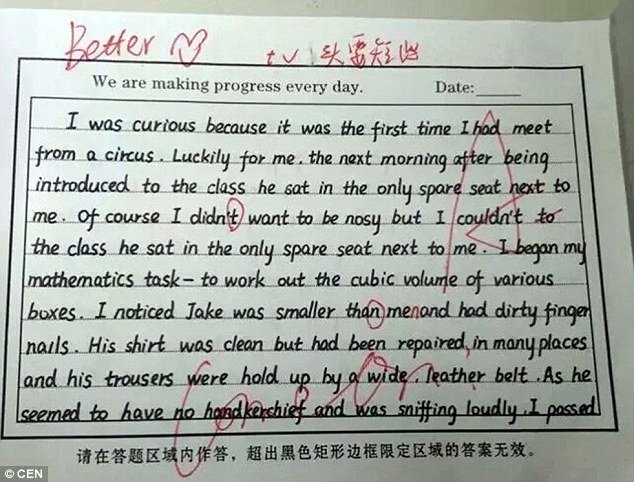 Better
tv 头要短些
We are making progress every day. Date:
I was curious because it was the first time I had meet
from a circus. Luckily for me. the next morning after being
introduced to the class he sat in the only spare seat next to
me. Of course I didn't want to be nosy but I couldn't to
the class he sat in the only spare seat next to me. I began my
mathematics task - to work out the cubic volume of various
boxes. I noticed Jake was smaller than men and had dirty finger
nails. His shirt was clean but had been repaired, in many places
and his trousers were hold up by a wide. leather belt. As he
seemed to have no handkerchief and was sniffing loudly. I passed
请在答题区域内作答，超出黑色矩形边框限定区域的答案无效。
© CEN